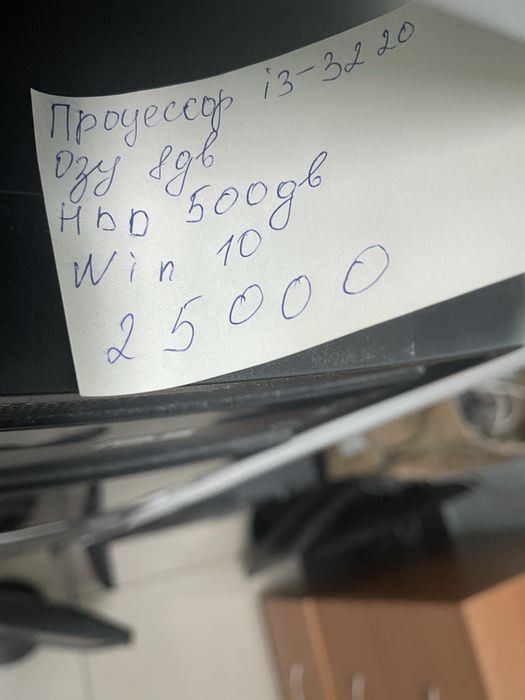 Процессор i3-3220
Озу 8дв
HDD 500дв
Win 10
25000